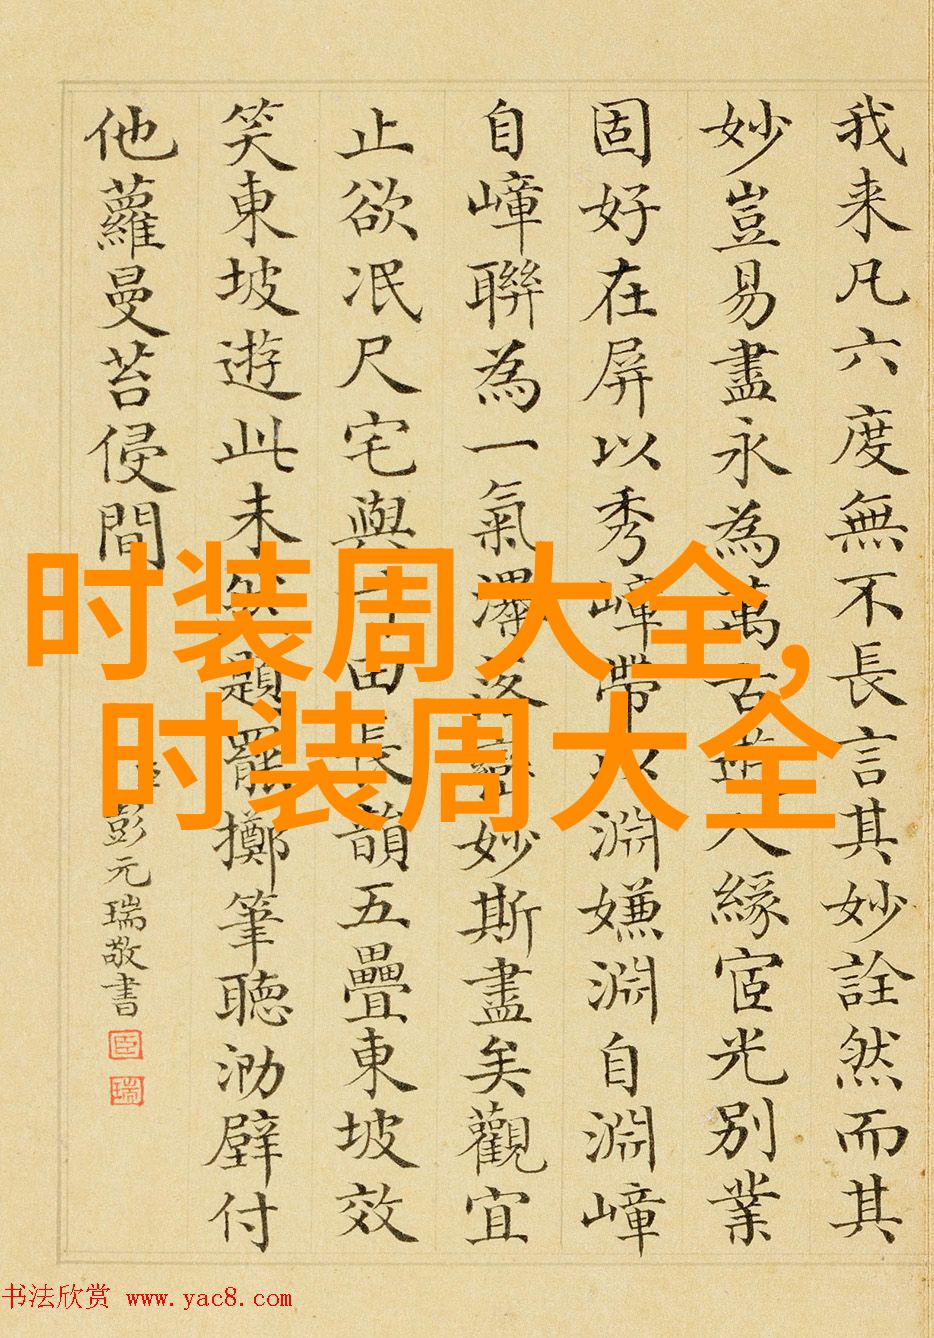 我来凡六度無不長言其妙詮然而其
妙豈易盡永為萬古逆人緣宧光別業
固好在屏以秀嶂帶以淵嫌淵自淵嶂
自嶂聯為一氣瀑妙斯盡矣觀宜
止欲泯尺宅與寸田長韻五疊東坡效
笑東坡遊此未然題罷擲筆聽泐壁付
他蘿曼苔侵間
彭元瑞敬書
臣
瑞
时装周大全,
时装周大全
书法欣赏 www.yac8.com